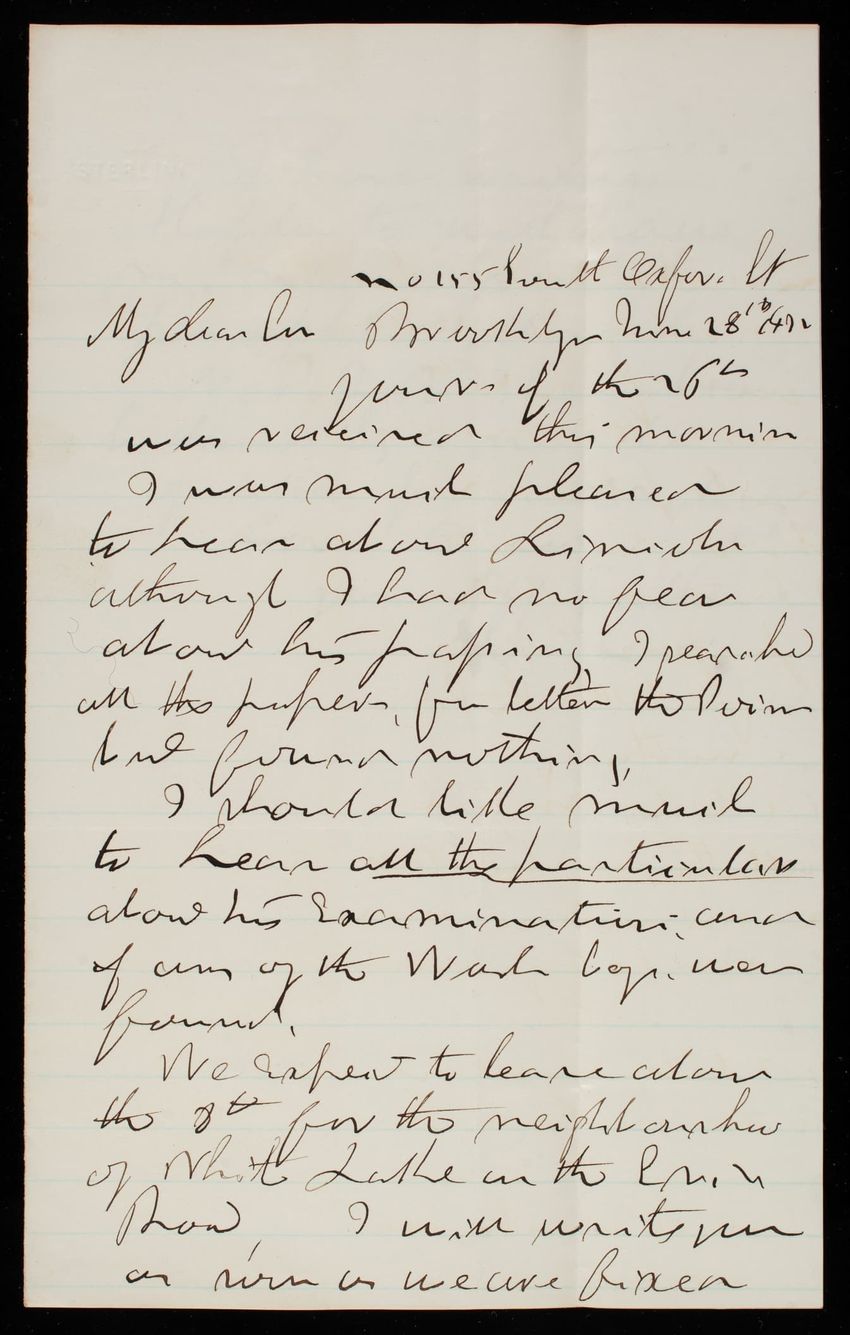 No 155 South Oxford St
My dear Son Brooklyn June 28th
Yours of the 26th
was received this morning
I was much pleased
to hear about Lincoln
although I had no fear
about his passing, I searched
all the papers, for letter
but found nothing,
I should like much
to hear all the particulars
about his Examination, and
if any of the Wash boys. were
found.
We expect to leave about
the 8th for the neighborhood
of White Lake on the Erie
Road, I will write you
as soon as we are fixed